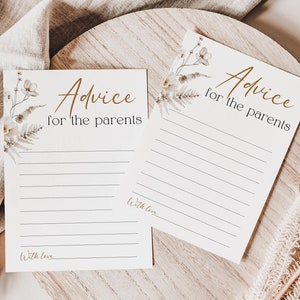 Advice
for the parents
With love
Advice
for the parents
With love